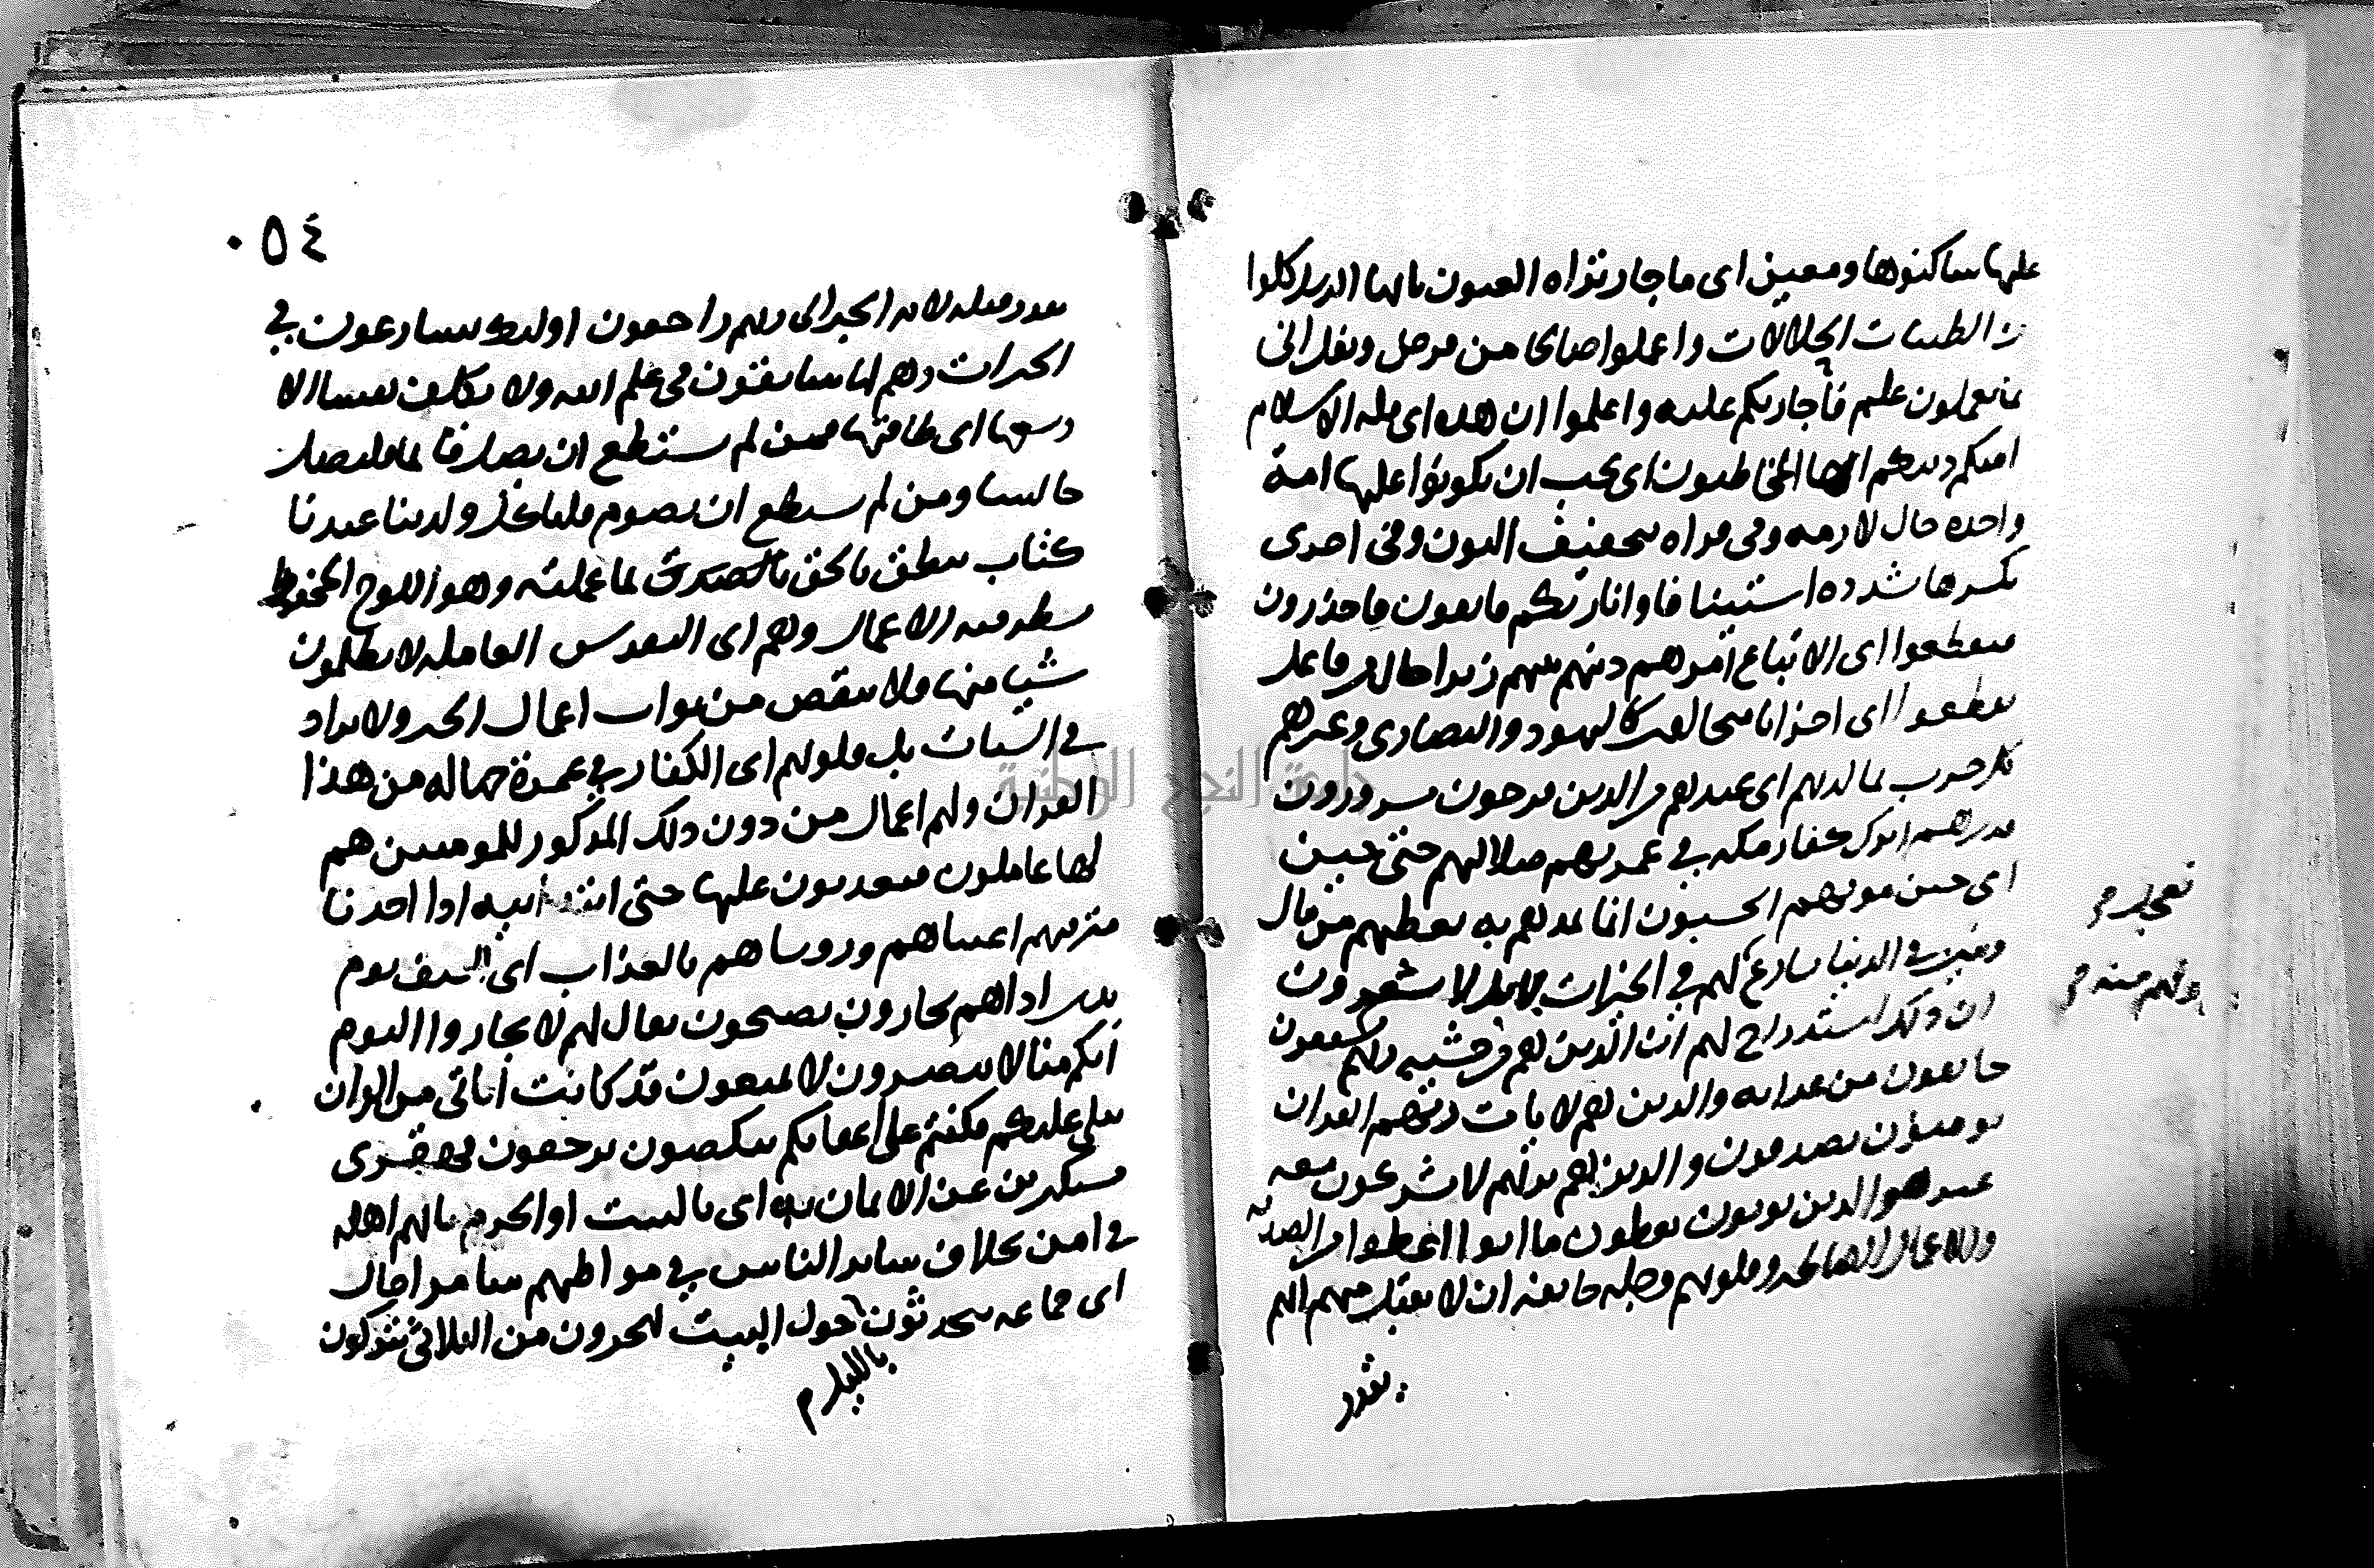 عليها ساكنوها ومعين اى ما جار تراه العيون يا ايها الرسل كلوا
من الطيبات الحلالات واعملوا صالحا من فرض ونفل انى
بما تعملون عليم فأجازيكم عليه واعلموا ان هذه اى ملة الاسلام
امتكم دينكم ايها المخاطبون اى يجب ان تكونوا عليها امة
واحدة حال لازمه وفى قراه بتخفيف النون وفى اخرى
بكسرها مشدده استينافا وانا ربكم فاتقون فاحذرون
فتقطعوا اى الاتباع أمرهم دينهم بينهم زبرا حال من فاعل
تقطعوا اى احزابا متخالفين كاليهود والنصارى وغيرهم
كل حزب بما لديهم اى عندهم من الدين فرحون مسرورون
فذرهم اترك كفار مكه في غمرتهم ضلالتهم حتى حين
اى حين موتهم ايحسبون انما نمدهم به نعطيهم من مال
وبنين في الدنيا نسارع لهم في الخيرات بل لا يشعرون
ان ذلك استدراج لهم ان الذين هم من خشية ربهم مشفقون
خايفون من عذابه والذين هم لايات ربهم القران
يومنون يصدقون والذين هم بربهم لا يشركون معه
غيره والذين يوتون يعطون ما اتوا اعطوا من الصدقه
والاعمال الصالحه وقلوبهم وجله خايفه ان لا تقبل منهم انهم
نعجل م
يقدر
٠٥٤
يقدر قبله لام الجر الى ربهم راجعون اوليك يسارعون في
الخيرات وهم لها سابقون فى علم الله ولا نكلف نفسا الا
وسعها اى طاقتها فمن لم يستطع ان يصل قايما فليصل
جالسا ومن لم يستطع ان يصوم فلياكل ولدينا عندنا
كتاب ينطق بالحق بالصدق بما عملته وهو اللوح المحفوظ
تسطر فيه الاعمال وهم اى النفوس العامله لا يظلمون
شيا منها فلا ينقص من ثواب اعمال الخير ولا يزاد
في السيات بل قلوبهم اى الكفار في غمرة جهاله من هذا
القران ولهم اعمال من دون ذلك المذكور للمومنين هم
لها عاملون فيعذبون عليها حتى ابتدائيه اذا اخذنا
مترفيهم اغنياهم وروساهم بالعذاب اى السيف يوم
بدر اذا هم يجارون يصيحون يقال لهم لا تجاروا اليوم
انكم منا لا تنصرون لا تمنعون قد كانت أياتى من القران
تتلى عليكم فكنتم على أعقابكم تنكصون ترجعون قهقرى
مستكبرين عن الايمان به اى بالبيت او الحرم بانهم اهله
في امن بخلاف ساير الناس في مواطنهم سامرا حال
اى جماعه يتحدثون حول البيت تهجرون من الثلاثى تتركون
بالليل م